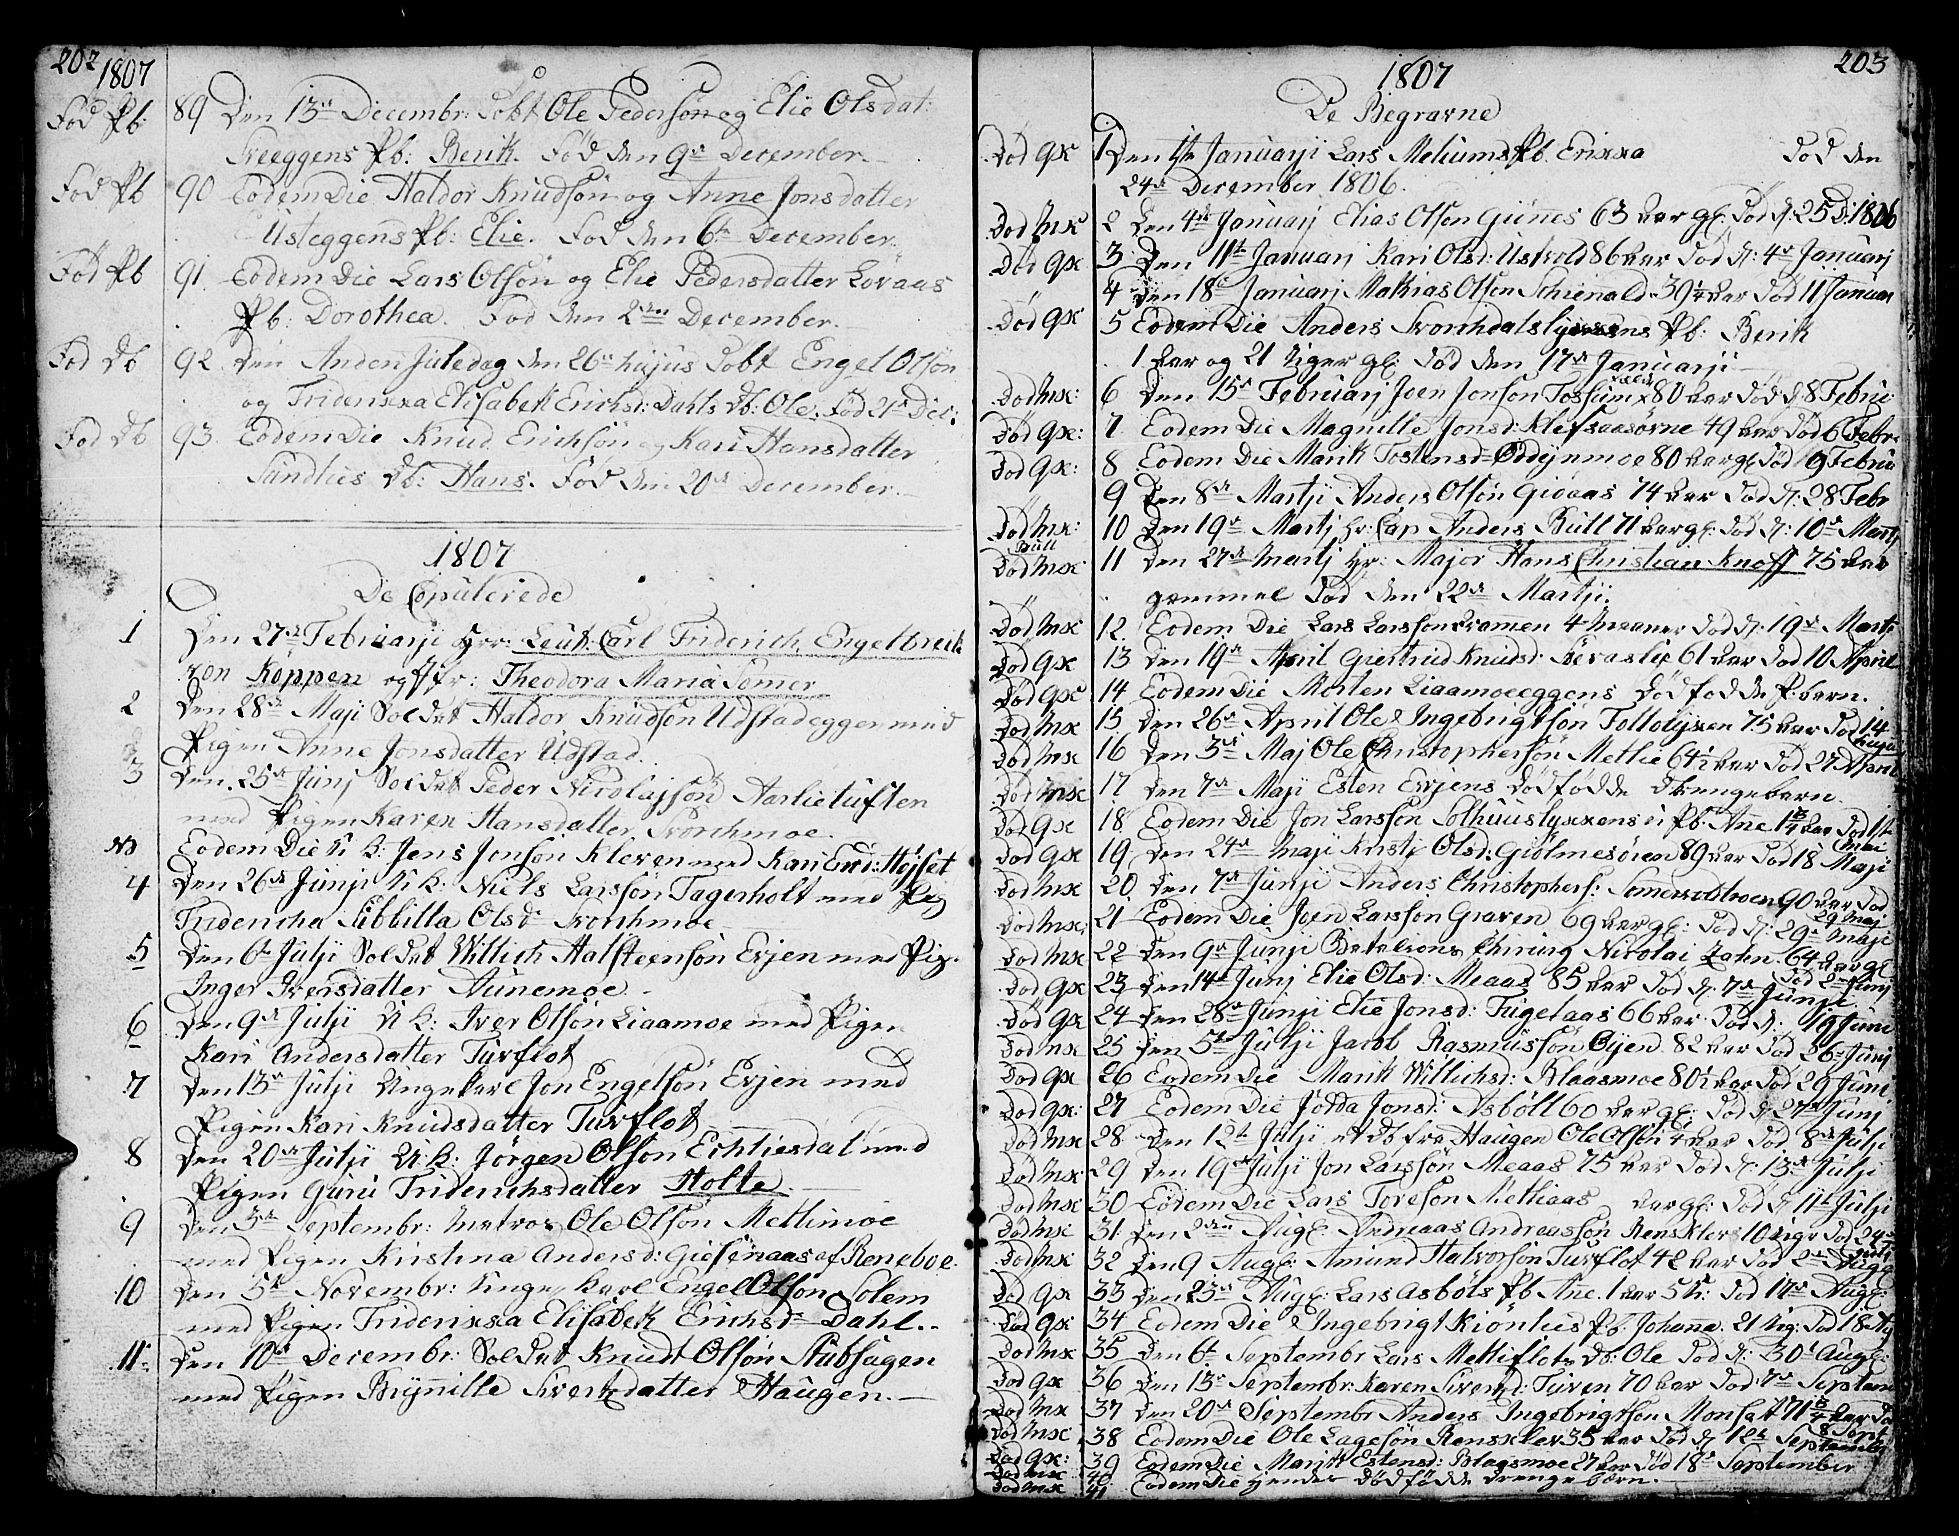 202
1807
Fød Pb 89 Den 13de Decembr: Døbt Ole Pedersøn og Elie Olsdat:
Sveeggens Pb: Berit. Fød den 9de December.
Fød Pb 90 Eodem Die Haldor Knudsøn og Anne Jonsdatter
Usteggens Pb: Elie. Fød den 6te December.
Fød Pb 91. Eodem Die Lars Olsøn og Elie Pedersdatter Løvaas
Pb: Dorothea. Fød den 2den December.
Fød Db 92. Den Anden Juledag den 26de hujus Døbt Engel Olsøn
og Friderikka Elisabeth Erichsd: Dahls Db: Ole. Fød 21de Dec:
Fød Db 93. Eodem Die Knud Erichsøn og Kari Hansdatter
Sundlies Db: Hans. Fød den 20de December.
1807
De Copulerede
1 Den 27de Februarji Hrr: Leut: Carl Friderich Engelbreth
von Køppen og Jfr: Theodora Maria Somer
2 Den 28de Maji Soldat Haldor Knudsøn Udstadeggen med
Pigen Anne Jonsdatter Udstad.
3 Den 25de Junj Soldat Peder Nicolajsøn Aarlietuften
med Pigen Karen Hansdatter Storchmoe.
Eodem Die U K: Jens Jonsøn Kleven med Kari Højset
4 Den 26de Junji U K: Niels Larssøn Fagerholt med Pig
Fridericha Sibbilla Olsd: Storchmoe
5 Den 6te Julji Soldat Willich Halsteensøn Evjen med Pig.
Inger Iversdatter Aunemoe.
6 Den 9de Julji U K: Iver Olsøn Liaamoe med Pigen
Kari Andersdatter Turflot
7 Den 13de Julji Ungekarl Jon Engelsøn Evjen med
Pigen Kari Knudsdatter Turflot
8 Den 20de Julji U K: Jørgen Olsøn med
Pigen Guru Friderichsdatter Holte.
9 Den 3de Septembr: Matros Ole Olsøn Metlimoe
med Pigen Kristina Andersd: af Reneboe.
10 Den 5te Novembr: Unge Karl Engel Olsøn Solem
med Pigen Friderikka Elisabeth Erichsd: Dahl.
11. Den 10de Decembr: Soldat Knudt Olsøn Stubsagen
med Pigen Brynnille Sivertsdatter Haugen.
203
1807
De Begravne
Død Qx 1 Den 1ste Januarji Lars Meliums Pb. Erikka Død den
24de December 1806.
Død Mx 2 Den 4de Januarj Elias Olsøn 63 aar gl: Død d: 25 D: 1806
Død Qx 3 Den 11te Januarj Kari Olsd: 86 aar Død d: 4de Januarj
4 Den 18de Januarj Mathias Olsøn 39 1/4 aar Død 11 Januar
Død Qx 5 Eodem Die Anders Pb: Berit
1 aar og 21 Uger gl: Død den 17de Januarji
Død Mx: 6 Den 15de Februarj Joen Jonsøn 80 aar Død d: 8 Februa
Død Qx: 7 Eodem Die Magnille Jonsd: 49 aar Død 6 Febr
Død Qx: 8 Eodem Die Marit Tostensd: 80 aar gl Død 9 Februa
9 Den 8de Martji Anders Olsøn 74 aar Død d: 28 Febr
Død Mx: 10 Den 19de Martj Hr: Cap Anders Bull 71 aar gl: Død d: 10de Martj
Bull
Død Mx 11 Den 27de Martj Hr: Major Hans Christian Knoff 75 aar
gammel Død den 22de Martji.
Død Mx 12. Eodem Die Lars Larssøn Kramen 4 Maaner Død d: 19de Martj
Død Qx 13 Den 19de April Giertrud Knudsd: 61 aar Død 10 April
Død Qx 14 Eodem Die Morten Liaamoeeggens Død fød de P: barn.
Død Mx 15. Den 26de April Ole Ingebrigtsøn 75 aar Død 14
hujus
Død Mx 16 Den 3de Maj Ole Christophersøn Metlie 64 1/2 aar Død 27 April
Død Mx 17 Den 7de Maji Esten Evjens Død fødde Drengebarn.
Død Qx 18 Eodem Die Jon Larssøn Pb. Ane 1 3/4 aar Død 1ste
Mai
Død Qx 19. Den 24de Maji Olsd: 89 aar Død 18 Maji
Død Mx 20. Den 7de Junji Anders Christophers: 90 aar Død
29 Maj
Død Mx: 21. Eodem Die Joen Larssøn Graven 69 aar gl: Død d: 29de Maji
Død Mx 22 Den 9de Junji Batalions Chirurg Nicolai Zahn 64 aar gl
Død 2den Junj
Død Qx 23 Den 14de Junj Elie Olsd: Meaas 85 aar Død d: 7de Junji
Død Qx 24 Den 28de Junji Elie Jonsd: Fugelaas 66 aar. Død d: 19 Juni
Død Mx 25 Den 5te Julji Jacob Rasmussøn Øyen 82 aar Død 26de Junj
Død Qx 26 Eodem Die Marit Willichsd: Blaasmoe 80 1/2 aar Død 29 Juni
Død Qx: 27 Eodem Die Jødda Jonsd: Asbøll 60 aar gl: Død d: 27de Junj
Død Mx 28 Den 12te Julji et Db fra Haugen Ole Olsøn 4 aar Død 8de Julji
Død Mx: 29 Den 19de Julji Jon Larssøn Meaas 75 aar Død d: 13de Julji
Død Mx 30 Eodem Die Lars Toresøn aar gl: Død d: 11te Julji
Død Mx 31. Den 2den Aug: Andreaas Andreassøn Rensklev 10 Uger Død 24de
Julj
Død Mx 32. Den 9 Aug: Amund Halvorsøn Turflot 42 aar Død 2den Aug
Død Qx 33 Den 23de Aug: Lars Asbøls Pb Ane. 1 aar 5 U: Død 14de Aug:
Død Qx: 34 Eodem Die Ingebrigt Pb. Johana. 21 Ug: Død 18
Død Mx 35 Den 6te Septembr Lars Metliflots Db: Ole Død d: 30te Aug:
Død Qx 36 Den 13de Septembr: Karen Siverd: Turen 70 aar Død 7de Septem
Død Mx 37 Den 20de Septembr Anders Ingebrigtsøn Monset 71 3/4 aar Død
8 Sept
Død Mx 38 Eodem Die Ole Lagesøn Rensklev 35 aar Død d: Septembr
Død Qx: 39 Eodem Die Marit Estensd: Blaasmoe 27 aar Død 18de September
Død Mx 40. Eodem Die Død fødde Drenge bærn.
Død Mx 41